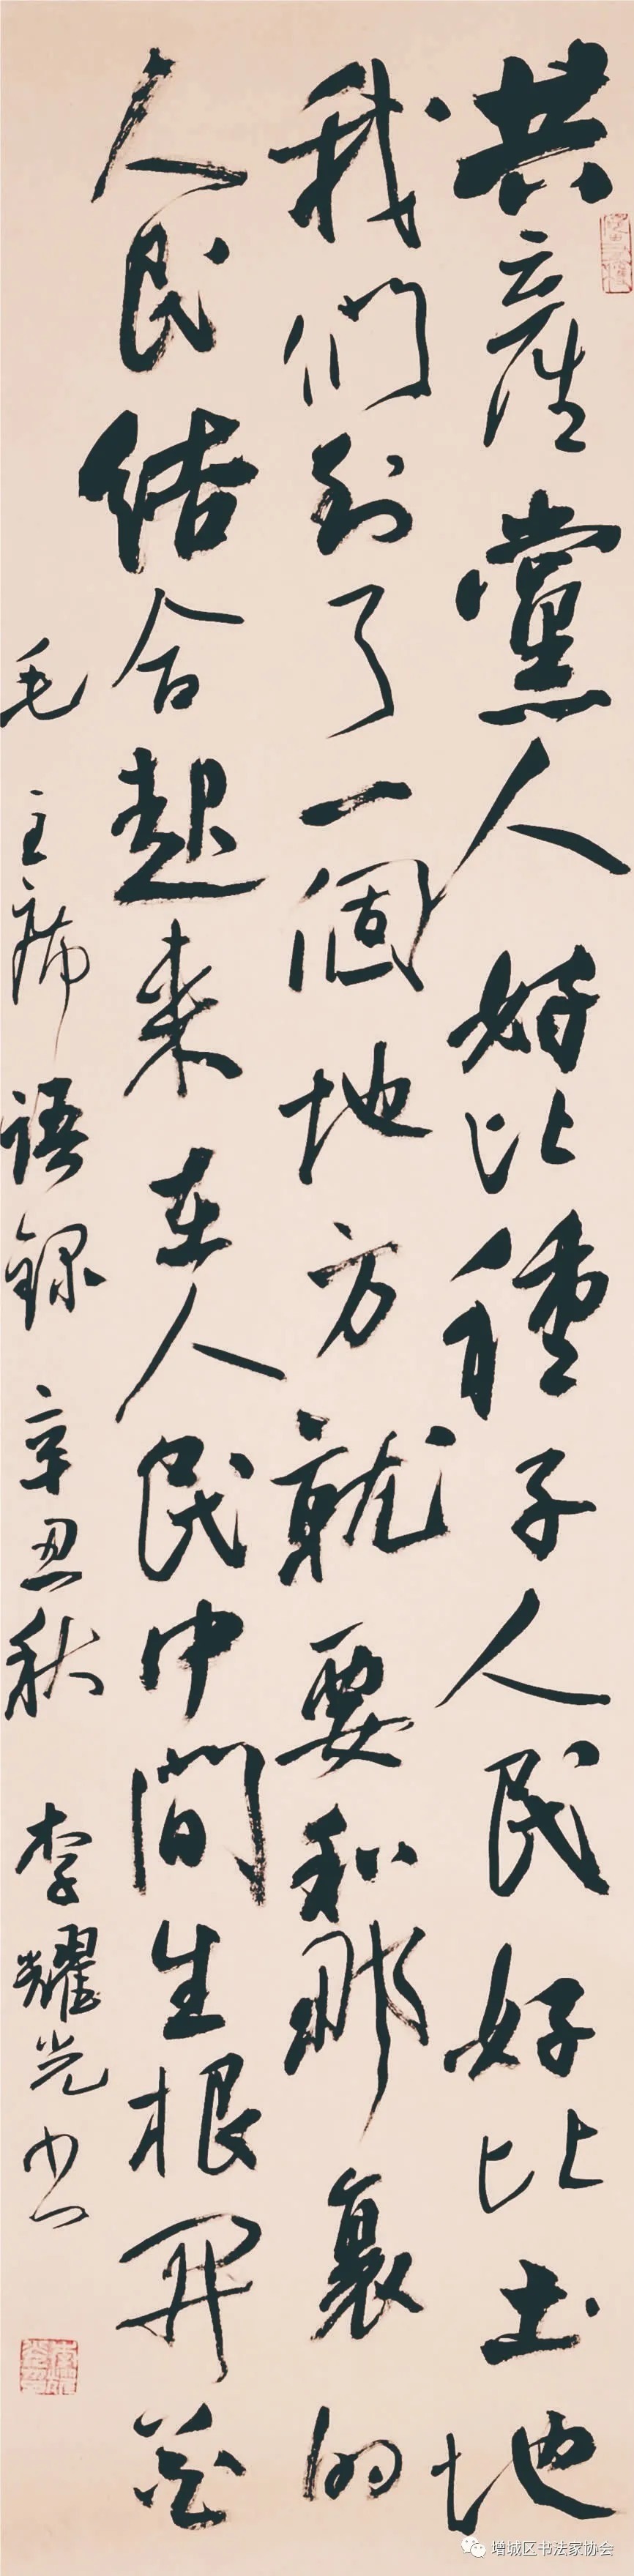 共產黨人好比種子人民好比土地
我們到了一個地方就要和那裏的
人民結合起來在人民中間生根開花
毛主席語錄辛丑秋李耀光书
增城区书法家协会